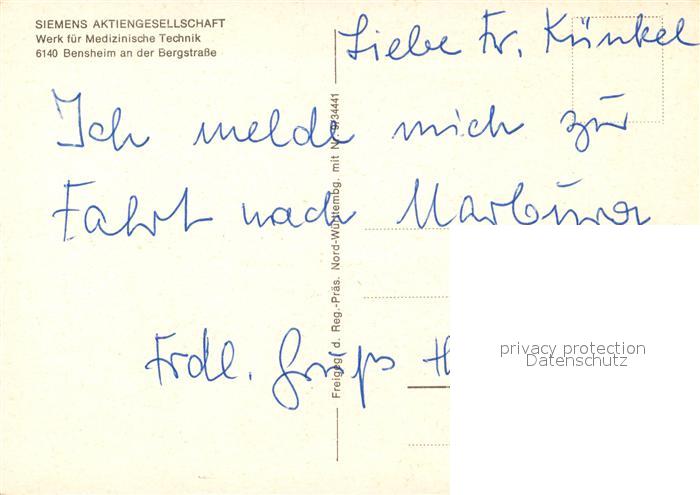 SIEMENS AKTIENGESELLSCHAFT
Werk für Medizinische Technik
6140 Bensheim an der Bergstraße
Liebe Fr. Künkel
Ich melde mich zur
Fahrt nach Marburg
Frdl. Gruß H
Freigeg. d. Reg.-Präs. Nord-Württembg. mit Nr. 9/34441
privacy protection
Datenschutz